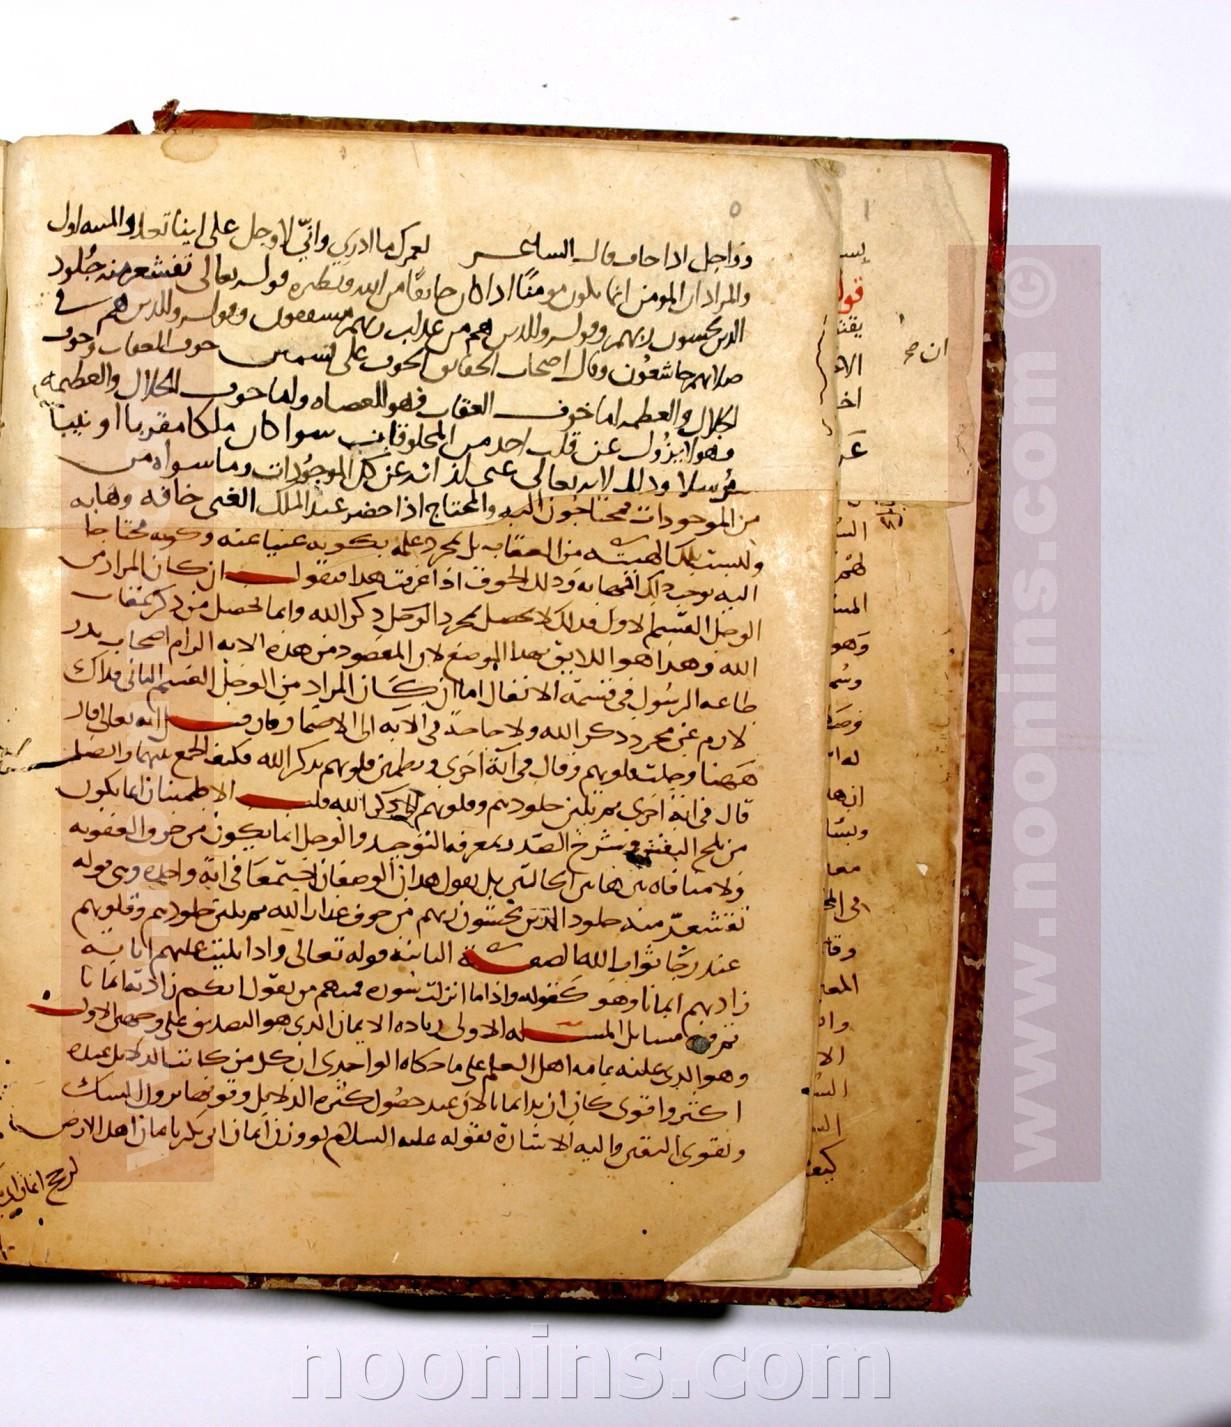 ٥
ووَاجِل اذا خاف قال الشاعر لعمرك ما ادري وانّي لاوجل على اينا تعدو المنية اول
والمراد ان المومن انما يكون مومنًا اذا كان خايفًا من الله ونظيره قوله تعالى تقشعر منه جُلود
الذين يخشون ربهم وقوله والذين هم من عذاب ربهم مشفقون وقوله والذين هم في
صلاتهم خاشعُون وقال اصحاب الحقائق الخوف على قسمين خوف العقاب وخوف
الجلال والعظمه اما خوف العقاب فهو للعصاه واما خوف الجلال والعظمه
فهو لا يزُول عن قلب احد من المخلوقاين سوا كان ملكا مقربا او نبيًا
مُرسلا وذلك لانه تعالى غني لذاته عن كل الموجُودات وما سواه من
من الموجودات محتاجُون اليه والمحتاج اذا حضر عند الملك الغني خافه وهابه
وليست تلك الهيبة من العقاب بل مجرد علمه بكونه غنيا عنه وكونه محتاجا
اليه يوجب تلك المهابه وذلك الخوف اذا عرفت هذا فنقول ان كان المراد من
الوجل القسم الاول فذلك لا يحصل بمجرد الوجل ذكر الله وانما يحصل من ذكر عقاب
الله وهذا هو اللايق بهذا الموضع لان المقصود من هذه الايه الزام اصحاب بدر
طاعه الرسُول في قسمة الانفال اما ان كَان المراد من الوجل القسم الثاني فذلك
لازم عن مجرد ذكر الله ولا حاجة في الايه الى الاضمار فان قيل انه تعالى قال
ههنا وجلت قلوبهم وقال في آية اخرى وتطمئن قلوبهم بذكر الله فكيف الجمع بينهما وايضا
قال في اية اخرى ثم تلين جلودهم وقلوبهم الى ذكر الله قلنا الاطمينان انما يكون
من ثلج اليقين وشرح الصدر بمعرفه التوحيد والوجل انما يكون من خوف العقوبه
ولا منافاه بين هاتين الحالتين بل نقول هذان الوصفان اجتمعَا في اية واحده وهي قوله
تقشعرّ منه جلود الذين يخشون ربهم من خوف عذاب الله ثم تلين جلودهم وقلوبهم
عند رجَا ثواب الله الصفة الثانية قوله تعالى واذا تليت عليهم اياته
زادتهم ايمانا وهو كقوله واذا ما انزلت سُوره فمنهم من يقول ايكم زادته ايمانا
ثم فيه مسايل المسئله الاولى زياده الايمان الذي هو التصديق على وجهين الاول
وهو الذي عليه عامه اهل العلم على ما حكاه الواحدي ان كل من كانت الدلايل عنده
اكثر واقوى كان ازيد ايمانا لان عند حصُول كثره الدلايل وقوتها يزول الشك
ويقوى اليقين واليه الاشارة بقوله عليه السلام لو وزن ايمان ابي بكر بايمان اهل الارض
لرجح ايمان
١
ان صح
www.noonins.com ©
noonins.com